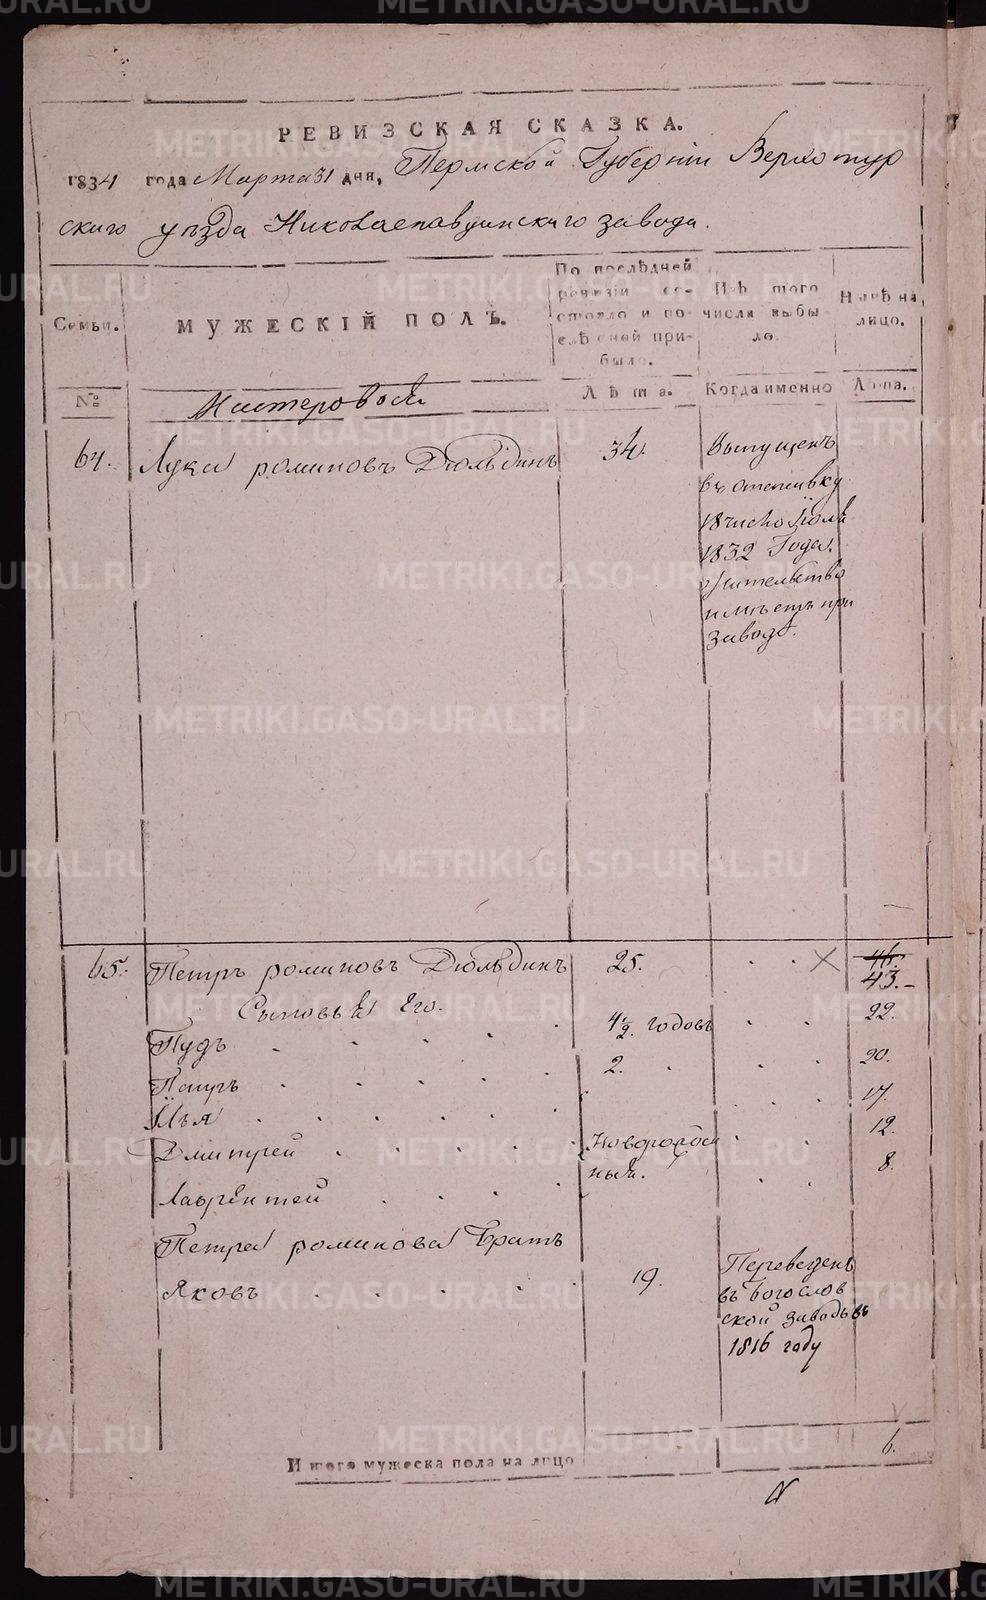 РЕВИЗСКАЯ СКАЗКА.
1834 года Марта 31 дня, Пермской Губерніи Верхотур
скаго уѣзда Николаепавдинскаго завода.
Семьи.
МУЖЕСКІЙ ПОЛЪ.
По послѣдней
ревизіи со-
стояло и по-
слѣ оней при-
было.
Изъ того
числа выбы-
ло.
Нынѣ на
лицо.
№
Мастеровой
Лѣта.
Когда именно
Лѣта.
64.
Лука романовъ Дюльдинъ
34.
Выпущенъ
въ отставку
18 числа Іюля
1832 Года.
жительство
имѣетъ при
заводѣ.
65.
Петръ романовъ Дюльдинъ
25.
46.
43.
Сыновья Его.
Пудъ
4 1/2 годовъ
22.
Павлъ
2.
20.
Илья
17.
Дмитрей
Новорожден
ный.
12.
Лаврентей
8.
Петра романова братъ
Яковъ
19.
Переведенъ
въ богослов
ской заводъ въ
1816 году
Итого мужеска пола на лицо
6.
METRIKI.GASO-URAL.RU